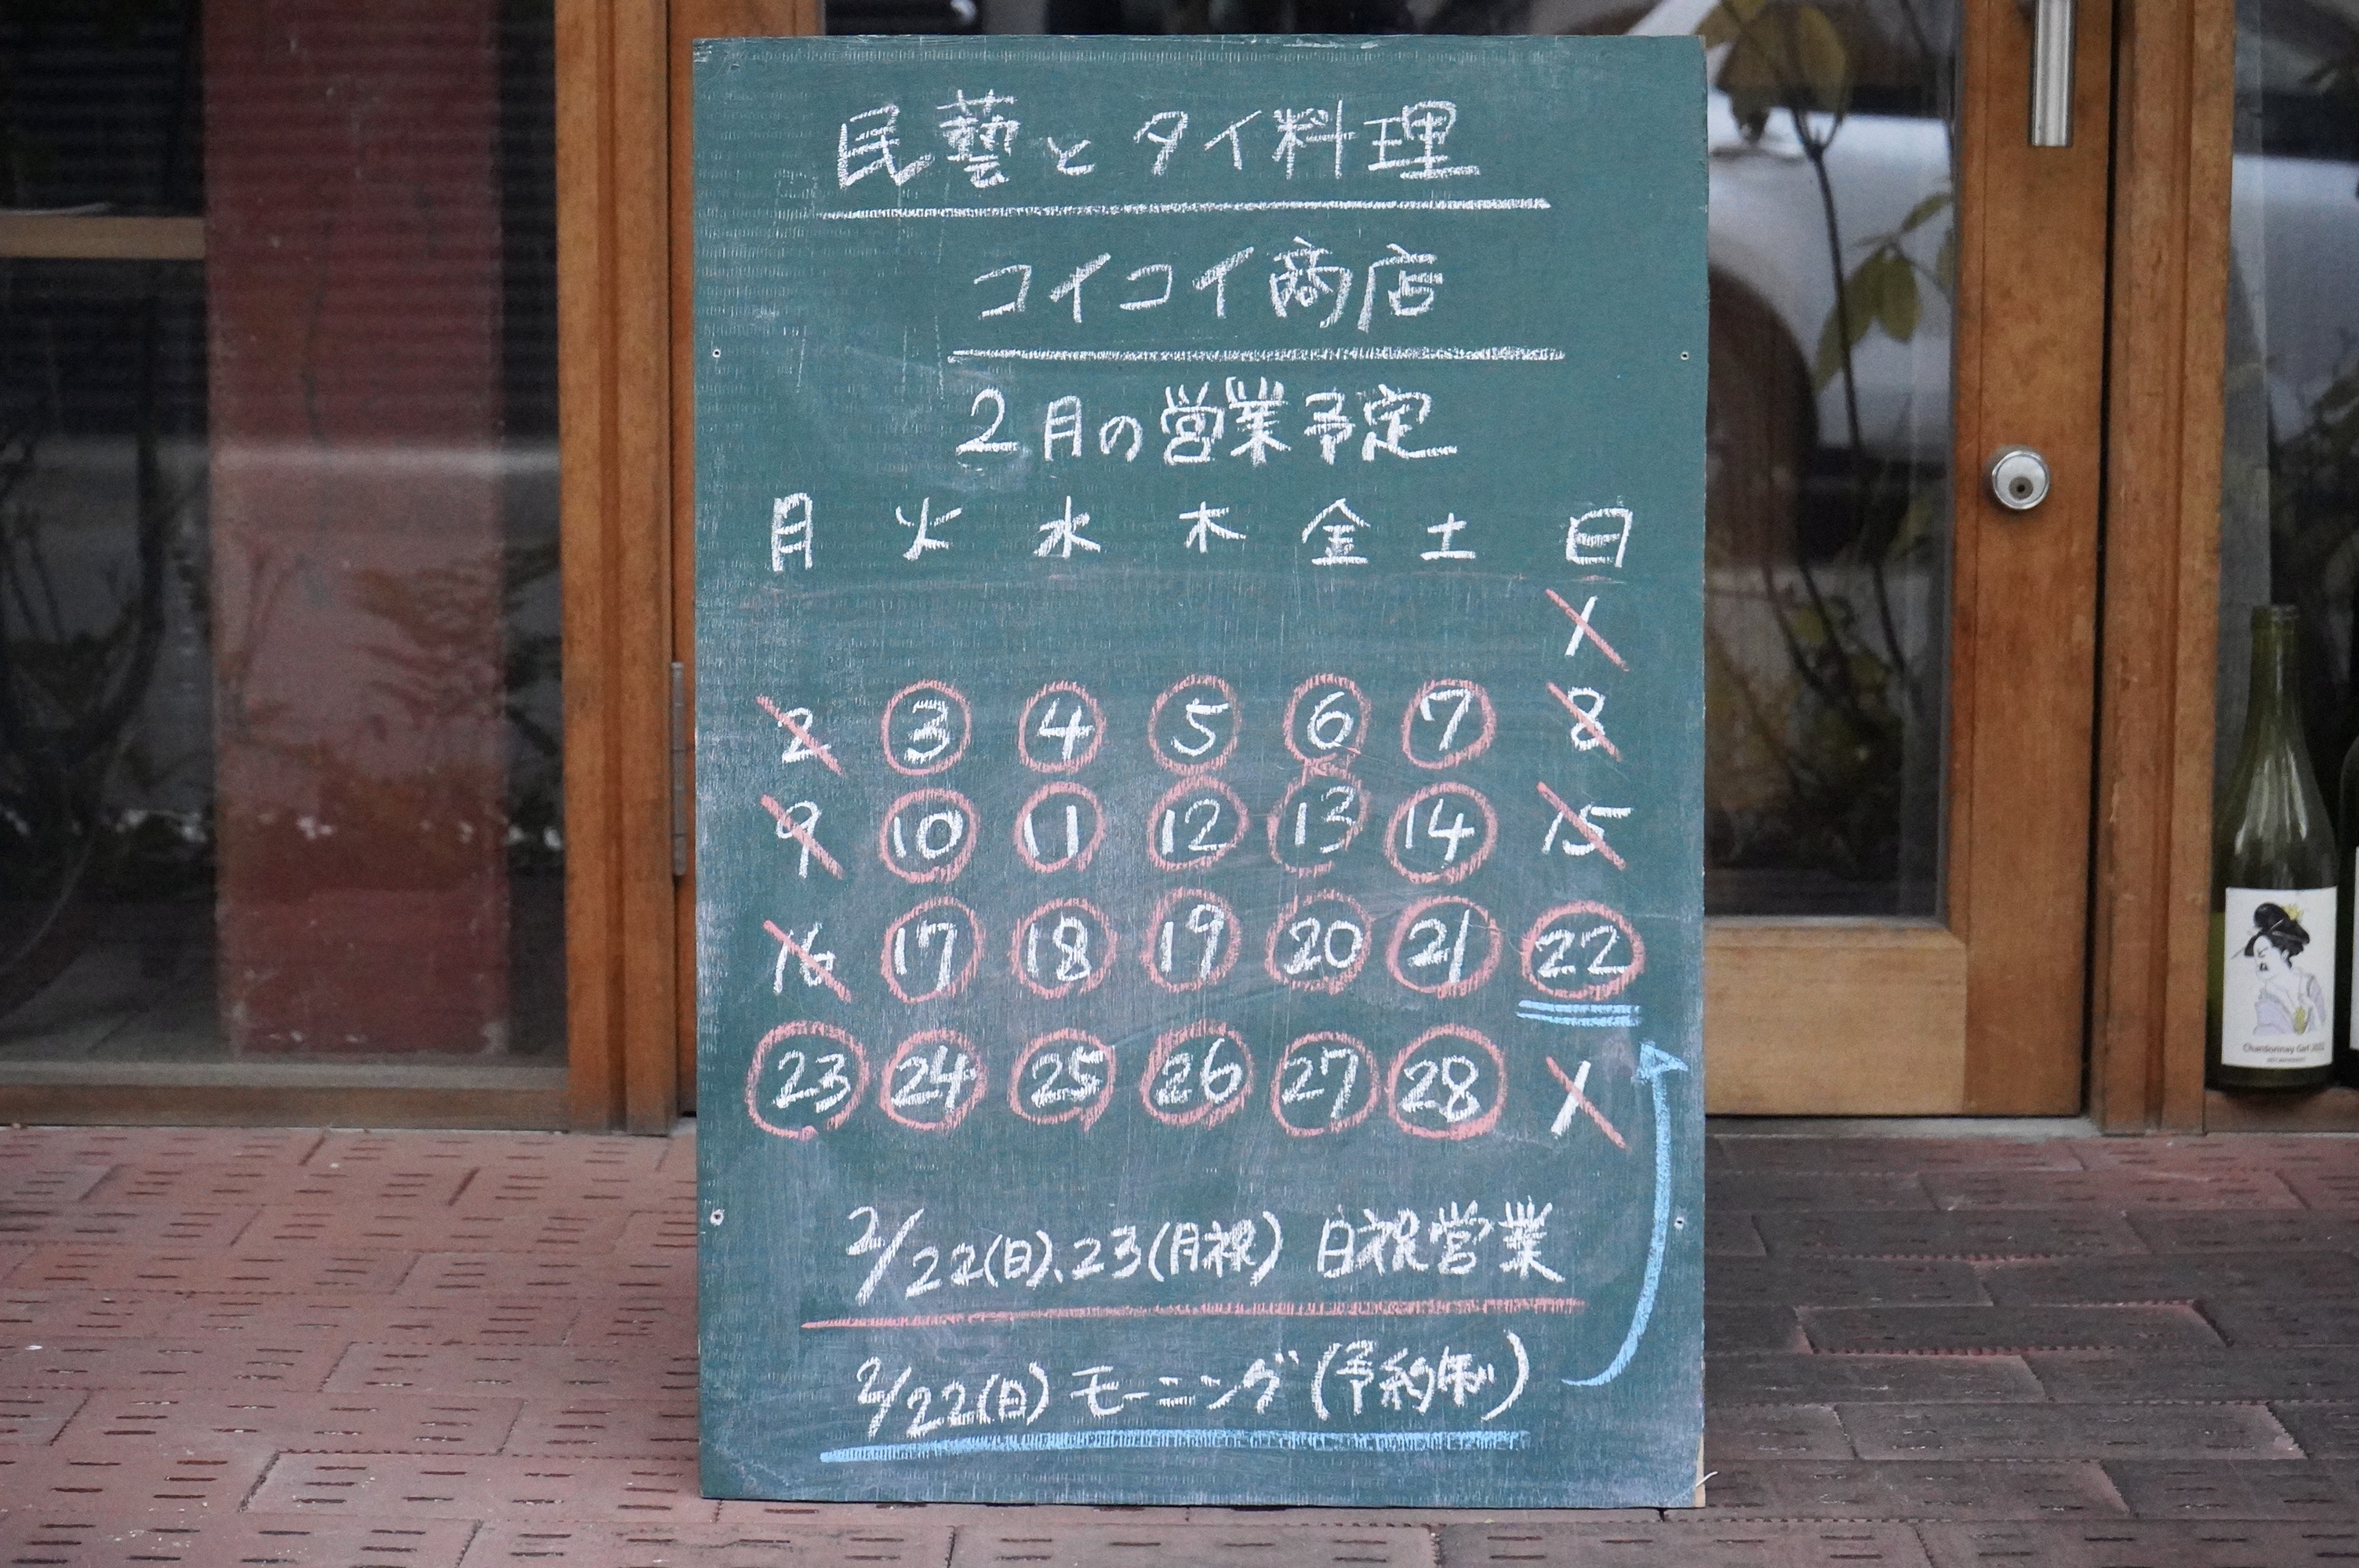 民藝とタイ料理
コイコイ商店
2月の営業予定
月 火 水 木 金 土 日
1
2 3 4 5 6 7 8
9 10 11 12 13 14 15
16 17 18 19 20 21 22
23 24 25 26 27 28 1
2/22(日)、23(月祝) 日祝営業
2/22(日) モーニング(予約制)
Chardonnay Girl 2022